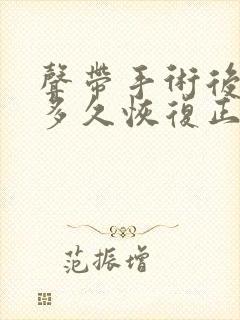 聲帶手術後
多久恢復正
范振增